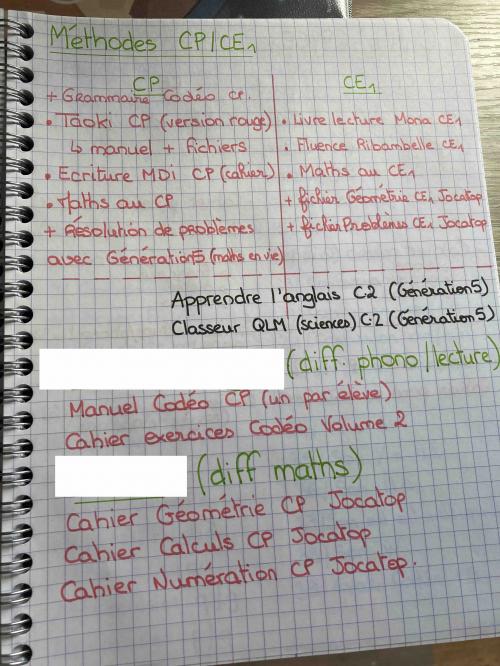 Méthodes CP/CE1
CP
+ Grammaire Codéo CP.
• Taoki CP (version rouge)
↳ manuel + fichiers
• Ecriture MDI CP (cahier)
• Maths au CP
+ Résolution de problèmes
avec Génération5 (maths en vie)
CE1
• Livre lecture Mona CE1
• Fluence Ribambelle CE1
• Maths au CE1
+ fichier Géométrie CE1 Jocatop
+ fichier Problèmes CE1 Jocatop
Apprendre l'anglais C.2 (Génération5)
Classeur QLM (sciences) C.2 (Génération5)
(diff. phono/lecture)
Manuel Codéo CP (un par élève)
Cahier exercices Codéo Volume 2
(diff maths)
Cahier Géométrie CP Jocatop
Cahier Calculs CP Jocatop
Cahier Numération CP Jocatop.